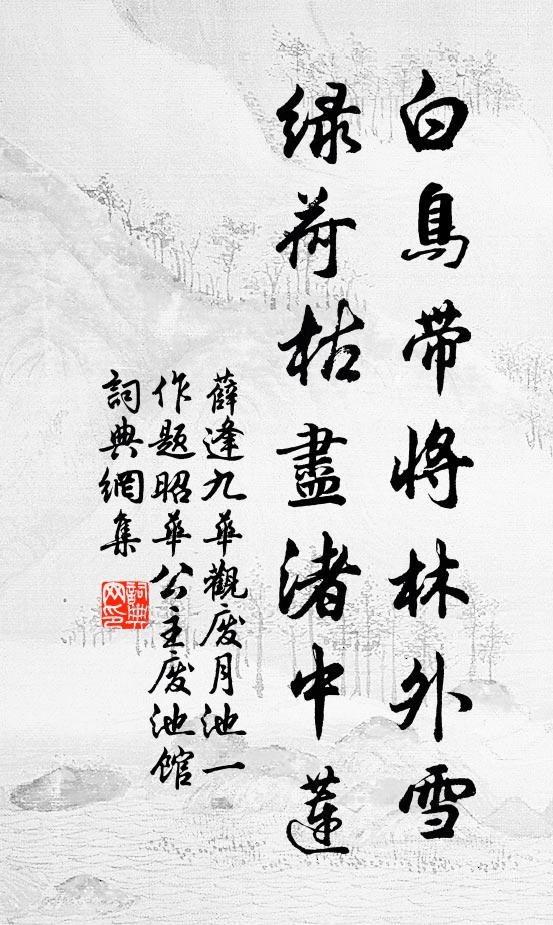 白鳥帶將林外雪
綠荷枯盡渚中蓮
薛逢九華觀废月池一
作題昭華公主废池館
詞典網集
詞典网印